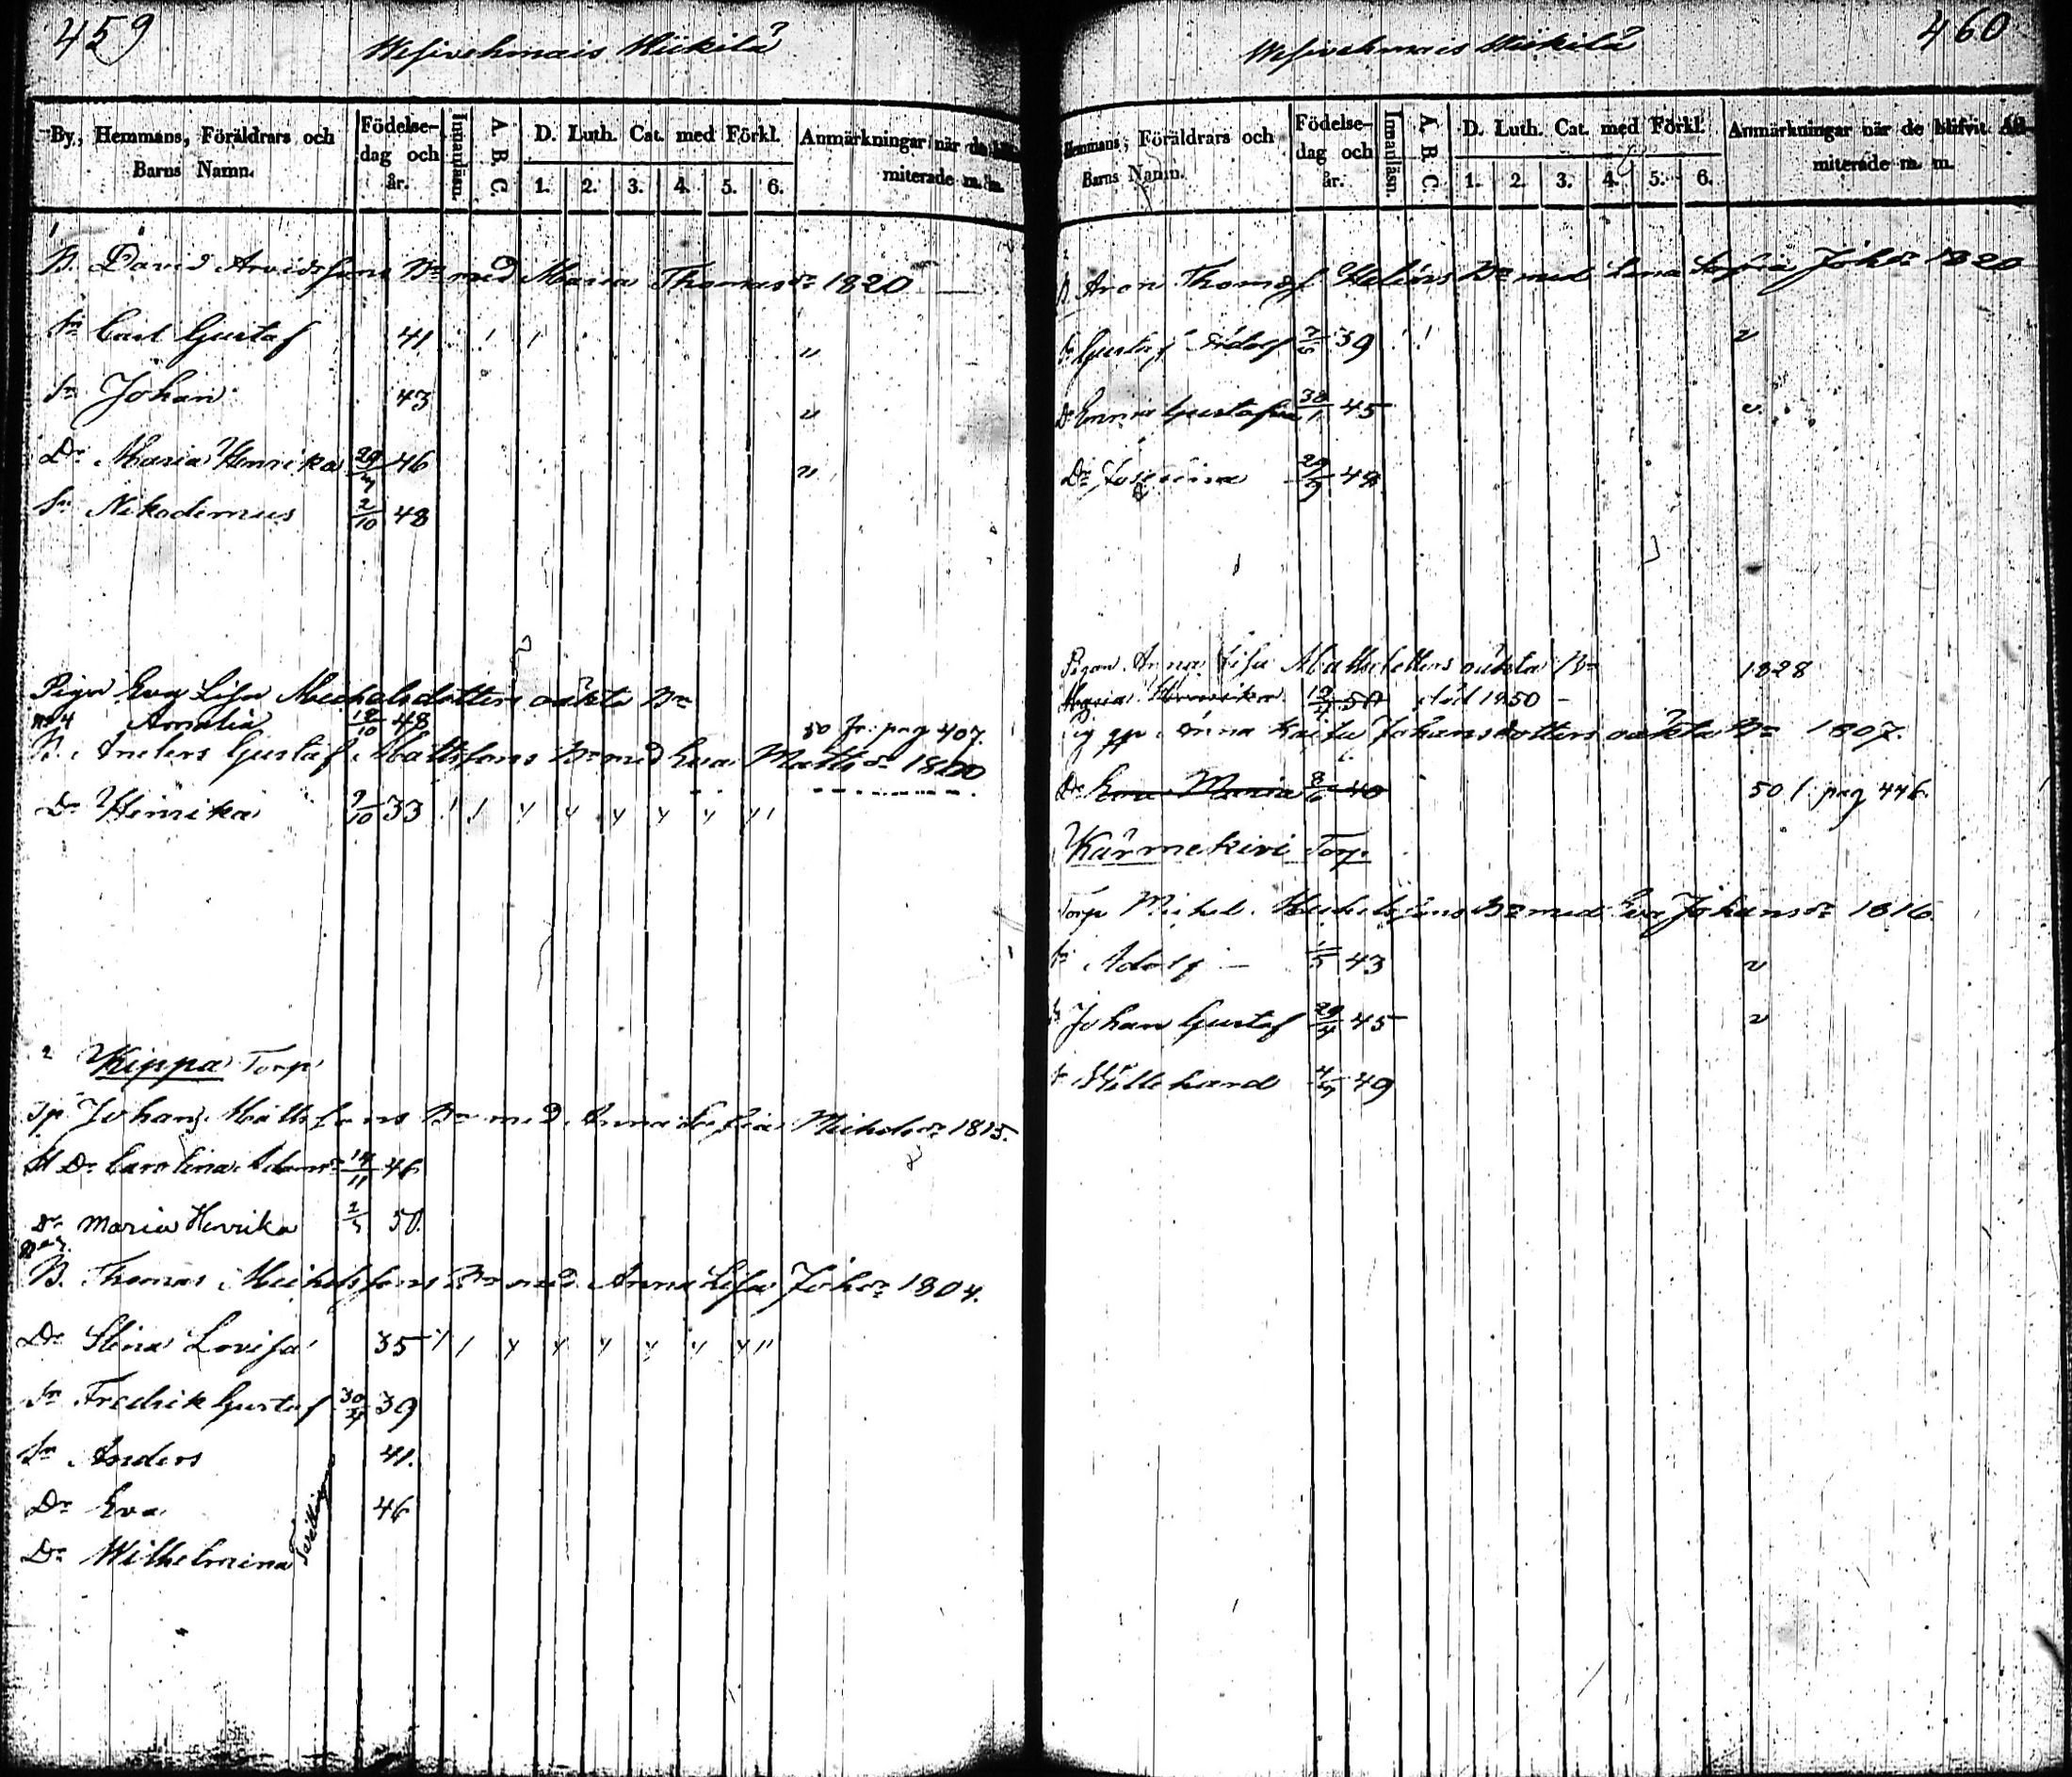 459
Wesivehmais Hiikilä
By, Hemmans, Föräldrars och Barns Namn.
Födelse-dag och år.
Innanläsn.
A. B. C.
D. Luth. Cat. med Förkl.
1. 2. 3. 4. 5. 6.
Anmärkningar när de miterade m. m.
1
B. David Arvidssons Bn med Maria Thomasdr 1820
Sn Carl Gustaf 41
Sn Johan 43
Dr Maria Henrika 46
Sn Nikodemus 2/10 48
Pigan Eva Lisa Michelsdotters oäkta Bn
Amalia 48 50 fr. pag 407.
B. Anders Gustaf Mattssons Bn med Eva Mattsdr 1800
Dr Henrika 9/10 33
2 Kippa Torp
Tp. Johan Mattssons Bn med Anna Sofia Michelsdr 1815.
Dr Carolina 14/11 46
Dr Maria Henrika 50.
B. Thomas Michelssons Bn med Anna Lisa Johdr 1804.
Dr Stina Lovisa 35
Sn Fredrik Gustaf 39
Sn Anders 41.
Dr Eva 46
Dr Wilhelmina
Tvillingar
460
Wesivehmais Hiikilä
Hemmans, Föräldrars och Barns Namn.
Födelse-dag och år.
Innanläsn.
A. B. C.
D. Luth. Cat. med Förkl.
1. 2. 3. 4. 5. 6.
Anmärkningar när de blifvit Ad-miterade m. m.
B Aron Thomasf. Heléns Bn med Lena Sofia Johdr 1820
Sn Gustaf Adolf 39
Dr Emma Gustafva 45
Dr Josefina 29/9 48
Pigan Anna Lisa Mattsdotters oäkta Bn 1828
Maria Henrika 50 död 1850
Anna Kaisa Johansdotters oäkta Bn 1807.
Dr Eva Maria 8/6 40 50 f. pag 446.
Kärmekivi Torp
Torp Michel Michelssons Bn med Eva Johansdr 1816.
Sn Adolf 43
Sn Johan Gustaf 45
Sn Willehard 49